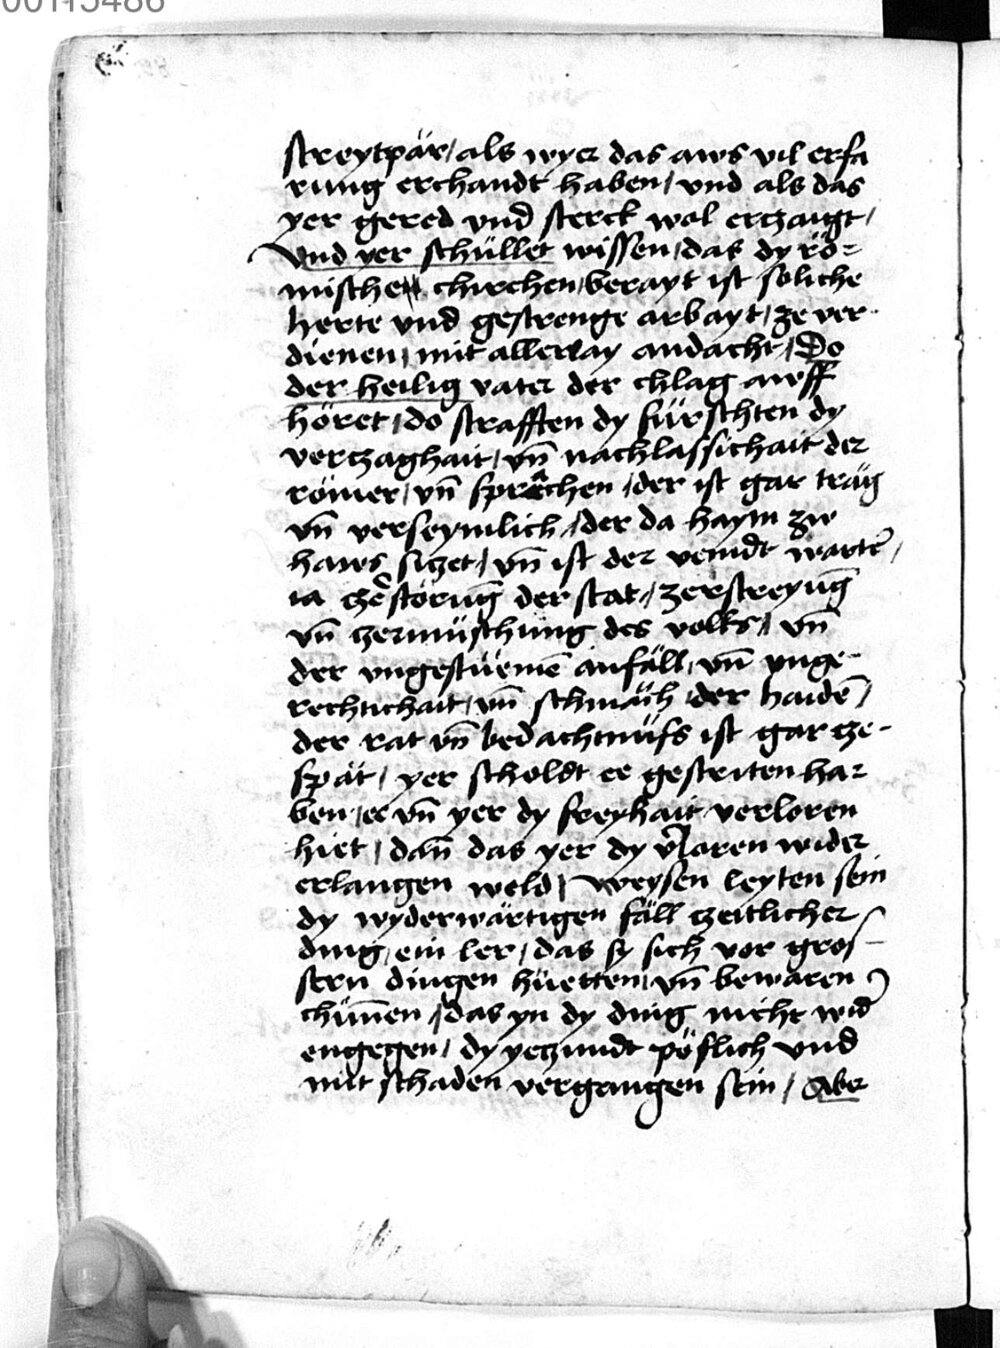 00115486
streytpär / als wyer das aws vil erfa
rung erchandt haben / vnd als das
yer gered vnd sterck wol erczaigt /
Vnd yer schüllet wissen / das dy rö-
mischen chirchen / berayt ist soliche
herte vnd gestrenge arbayt / ze ver-
dienen / mit allerlay andacht / Do
der heilig vater der chlag awff
höret / do strafften dy fürschten dy
verczaghait / vn̄ nachlassichait der
römer / vn̄ sprachen / der ist gar träg
vn̄ verseymlich / der da haym zw
haws siczet / vn̄ ist der veindt warte͂ /
ia cze͂störūg der stat / zerstreyūg
vn̄ czermüschung des volks / vn̄
der vngestüemē anfäll / vn̄ vnge-
rechtichait / vn̄ schmäch der haidē /
der rat vn̄ bedachtnüss ist gar cze-
spät / yer scholdt ee gestriten ha-
ben / ee vn̄ yer dy freyhait verloren
hiet / dan̄ das yer dy v͂loren wider
erlangen weld / Weysen leyten sein
dy wyderwärtigen fäll czeitlicher
ding / ein ler / das sy sich vor gros-
sern dingen hüetten / vn̄ bewaren
chün̄en / das yn dy ding nicht wid͂
engegen / dy yeczundt pöslich vnd
mit schaden vergangen sein / Aber